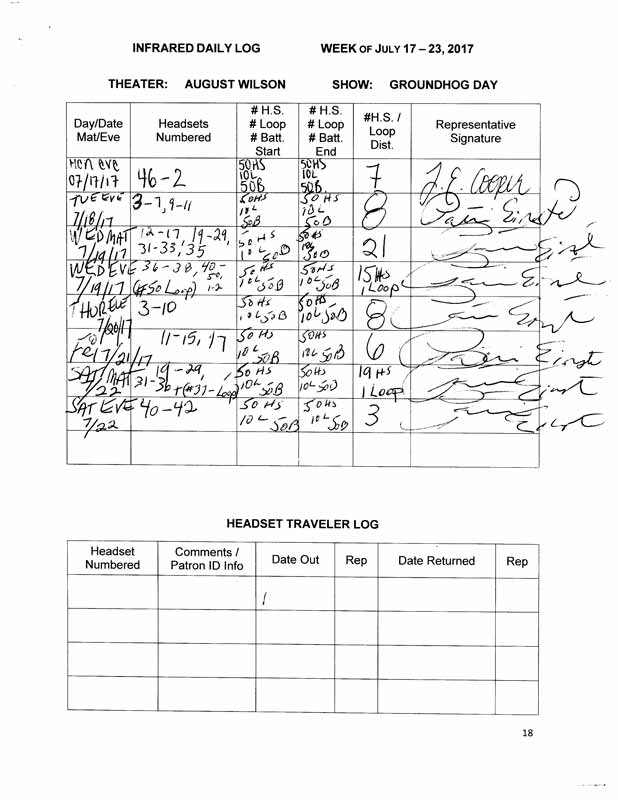 INFRARED DAILY LOG WEEK OF JULY 17 – 23, 2017
THEATER: AUGUST WILSON SHOW: GROUNDHOG DAY
Day/Date Mat/Eve
Headsets Numbered
# H.S. # Loop # Batt. Start
# H.S. # Loop # Batt. End
#H.S. / Loop Dist.
Representative Signature
MON EVE 07/17/17
46-2
50HS 10L 50B
50HS 10L 50B
7
J.E. Cooper
TUE EVE 7/18/17
3-7, 9-11
50HS 10L 50B
50HS 10L 50B
8
WED MAT 7/19/17
12-17 19-29, 31-33, 35
50HS 10L 50B
50HS 10L 50B
21
WED EVE 7/19/17
36-38, 40-50, 1-2 (#50 Loop)
50HS 10L 50B
50HS 10L 50B
15HS 1 Loop
THUR EVE 7/20/17
3-10
50HS 10L 50B
50HS 10L 50B
8
FRI 7/21/17
11-15, 17
50HS 10L 50B
50HS 10L 50B
6
SAT MAT 7/22
19-29, 31-36 + (#37-Loop)
50HS 10L 50B
50HS 10L 50B
19HS 1 Loop
SAT EVE 7/22
40-42
50HS 10L 50B
50HS 10L 50B
3
HEADSET TRAVELER LOG
Headset Numbered
Comments / Patron ID Info
Date Out
Rep
Date Returned
Rep
18